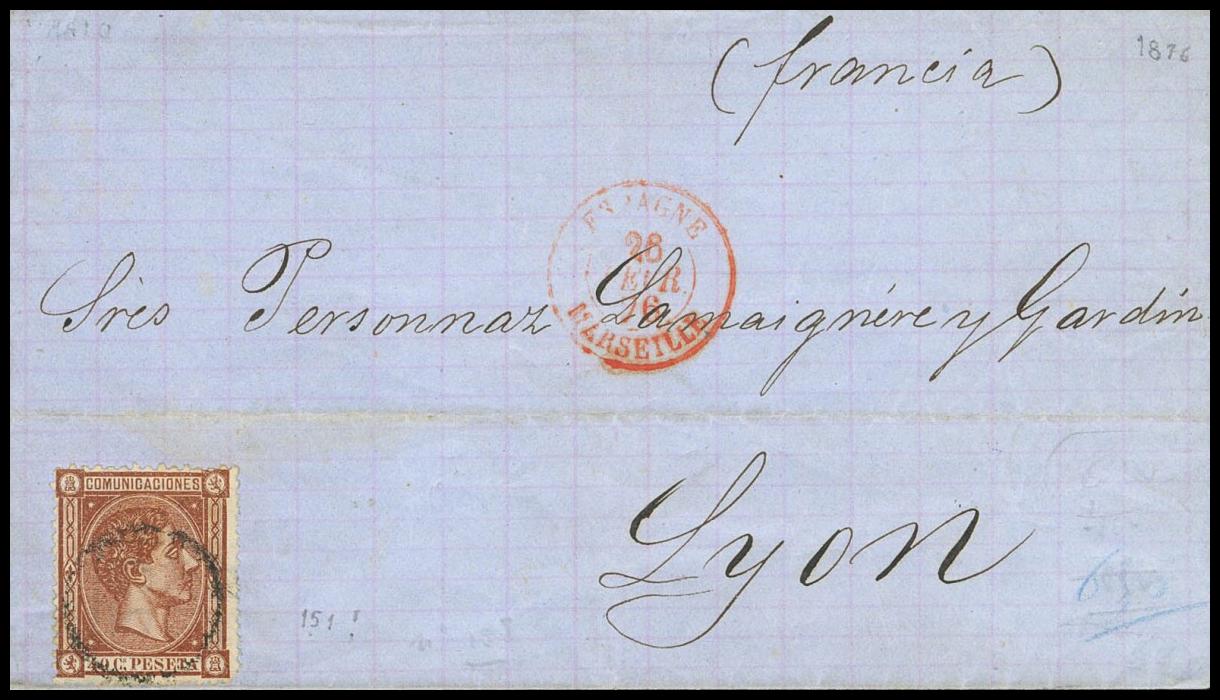 1876
(francia)
ESPAGNE
28
FEVR.
76
MARSEILLE
Srēs Personnaz Lamaignére y Gardín
Lyon
COMUNICACIONES
40 C. PESETA
151!